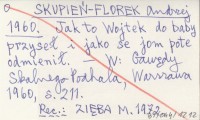 0 SKUPIEŃ-FLOREK Andrzej
1960. Jak to Wojtek do baby
przyseł i jako se jom pote
odmienił. – W: Gawędy
Skalnego Podhala, Warszawa
1960, s. 211.
Rec.: ZIĘBA M. 1972